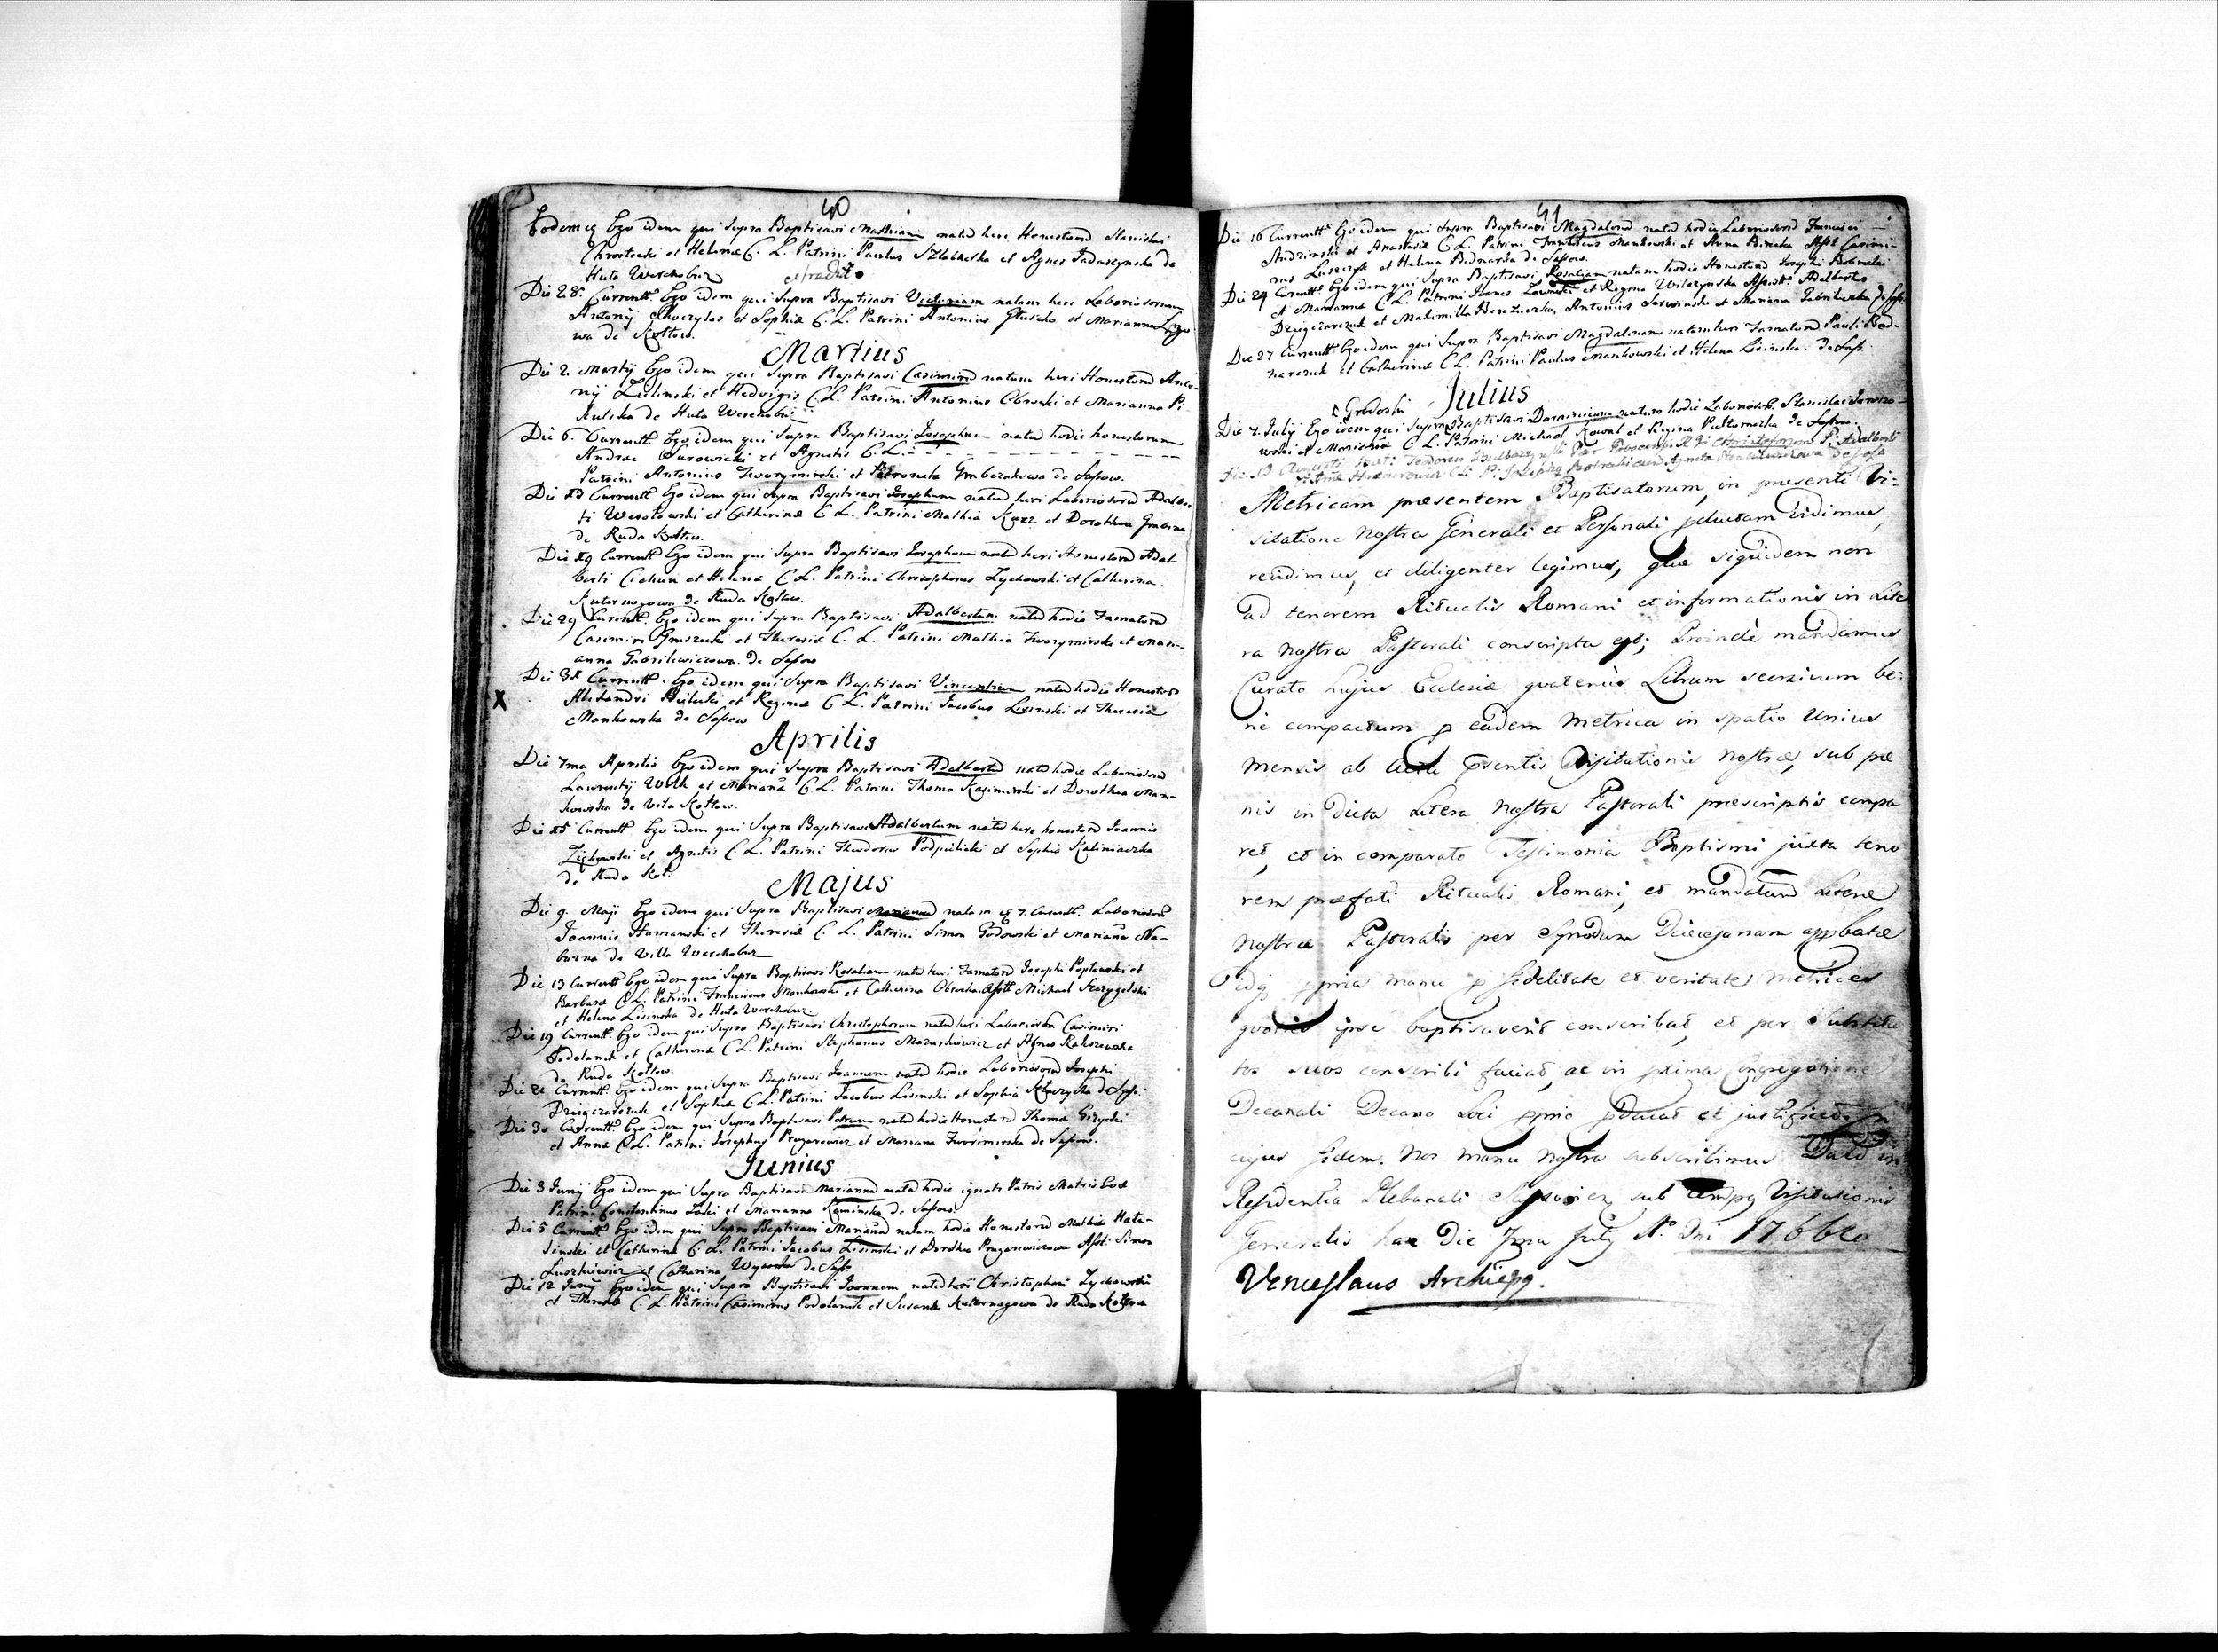 40
Eodem Ego idem qui Supra Baptisavi Mathiam natū heri Honestorū Stanislai
Chrostecki et Helenæ C. L. Patrini Paulus Szlabketka et Agnes Sadaszynska de
Huta Werchobuz
Die 28 Currentis Ego idem qui Supra Baptisavi Victoriam natam heri Laboriosorum
Antonij et Sophiæ C. L. Patrini Antonius Gluszko et Marianna
wa de Koltow.
Martius
Die 2 Martij Ego idem qui Supra Baptisavi Casimirū natum heri Honestorū Anto-
nij Zielinski et Hedvigis C. L. Patrini Antonius Obrocki et Marianna Pi-
kulska de Huta Werchobuz
Die 6. Currentis Ego idem qui Supra Baptisavi Josephum natū hodie honestorum
Andreæ Surowiecki et Agnetis C. L. - - - - - - - - - -
Patrini Antonius Tworzymirski et Petronela Grabczakowa de Sassow.
Die 13 Currentis Ego idem qui Supra Baptisavi Josephum natū heri Laboriosorū Adalber
ti Wesołowski et Catherinæ C. L. Patrini Mathias Kurz et Dorothea Grabina
de Ruda Koltow.
Die 19 Currentis Ego idem qui Supra Baptisavi Josephum natū heri Honestorū Adal
berti Cichun et Helenæ C. L. Patrini Christophorus Zychowski et Catherina
Kuternogowa de Ruda Koltow.
Die 29 Currentis Ego idem qui Supra Baptisavi Adalbertum natū hodie Famatorū
Casimiri Gruszecki et Theresiæ C. L. Patrini Mathias Tworzymirski et Mari-
anna Gabrilewiczowa de Sassow
X Die 31 Currentis Ego idem qui Supra Baptisavi Vincentium natū hodie Honestorū
Alexandri Bielecki et Reginæ C. L. Patrini Jacobus Lisinski et Theresia
Mankowska de Sassow
Aprilis
Die 7ma Aprilis Ego idem qui Supra Baptisavi Adalbertū natū hodie Laboriosorū
Laurentij Wilk et Mariañæ C. L. Patrini Thomas Kazimirski et Dorothea Man-
kowska de Vila Koltow.
Die 15 Currentis Ego idem qui Supra Baptisavi Adalbertum natū here honestorū Joannis
Zichowski et Agnetis C. L. Patrini Theodorus Podpielicki et Sophia Kaliniaczka
de Ruda Kol:
Majus
Die 9. Maji Ego idem qui Supra Baptisavi Mariannā natam 7. Currentis Laboriosorū
Joannis Hurmanski et Theresiæ C. L. Patrini Simon Godowski et Mariaña Na-
burna de Villa Werchobuz
Die 13 Currentis Ego idem qui Supra Baptisavi Rosaliam natū heri Famatorū Josephi Poplawski et
Barbaræ C. L. Patrini Franciscus Mankowski et Catherina Obrocka Asstt Michael Starzygelski
et Helena Lisinska de Huta Werchobuz
Die 19 Currentis Ego idem qui Supra Baptisavi Christophorum natū heri Laboriosorū Casimiri
Podolanik et Catherinæ C. L. Patrini Stephanus Mazurkiewicz et Agnes Rakszewska
de Ruda Koltow.
Die 21 Currentis Ego idem qui Supra Baptisavi Joannem natū hodie Laboriosorū Josephi
Dziegczarczuk et Sophiæ C. L. Patrini Jacobus Lisinski et Sophia de Sass.
Die 30 Currentis Ego idem qui Supra Baptisavi Petrum natū hodie Honestorū Thomæ Gizycki
et Anna C. L. Patrini Josephus Pruzarowicz et Mariana Tworzimirska de Sassow.
Junius
Die 3 Junij Ego idem qui Supra Baptisavi Mariannā natā hodie ignoti Patris Matris Evæ
Patrini Constantinus Zoski et Marianna Kaminska de Sassow
Die 5 Currentis Ego idem qui Supra Baptisavi Mariañā natam hodie Honestorū Mathiæ Hata-
sinski et Catherinæ C. L. Patrini Jacobus Lisinski et Dorothea Pruzarowiczowa Asst: Simon
Luszkiewicz et Catherina de Sass.
Die 12 Junij Ego idem qui Supra Baptisavi Joannem natū heri Christophori Zychowski
et Theresiæ C. L. Patrini Casimirus Podolanik et Susanna Kuternogowa de Ruda Koltow
41
Die 16 Currentis Ego idem qui Supra Baptisavi Magdalenā natā hodie Laboriosorū Francisci
Andzinski et Anastasiæ C. L. Patrini Franciscus Mankowski et Anna Binecka Asst Casimi-
rus Luszczyk et Helena Bednarka de Sassow.
Die 24 Currentis Ego idem qui Supra Baptisavi Rosaliam natam hodie Honestorū Josephi Bobrecki
et Mariannæ C. L. Patrini Joanes Zawalski et Regina Wilczynska Assist: Adalbertus
Dziegczarczuk et Maximilla Antonius Serwinski et Mariana Gabrilewska de Sass.
Die 27 Currentis Ego idem qui Supra Baptisavi Magdalenam natam heri Famatorū Pauli Bed-
narczuk et Catherinæ C. L. Patrini Paulus Mankowski et Helena Lisinska de Sass.
Julius
Die 7. Julij Ego idem qui Supra Baptisavi Dominicum natum hodie Laboriosorū Stanislai
wski et Mariañæ C. L. Patrini Michael Kowal et Regina Pasternaczka de Sassow.
Metricam præsentem Baptisatorum, in præsenti Vi-
sitatione Nostra Generali et Personali pductam Vidimus,
revidimus, et diligenter legimus; quæ siquidem non
ad tenorem Ritualis Romani et informationis in Lite
ra Nostra Pastorali conscripta est; Proinde mandamus
Curato hujus Ecclesiæ quatenus Librum seorsivum be-
ne compactum p eadem Metrica in spatio unius
Mensis ab Actu pventis Visitationis Nostræ, sub pæ
nis in dicta Litera Nostra Pastorali præscriptis compa
ret, et in comparato Testimonia Baptismi juxta teno
rem præfati Ritualis Romani, et mandatum Literæ
Nostræ Pastoralis per Synodum Diæcesanam appbatæ
idq ppria manu p fidelitate et veritate Metrices
quoties ipse baptisaverit conscribat, et per Substitu
tos suos conscribi faciat, ac in prima Congregatione
Decanali Decano Loci pprio pducat et justificet. In
cujus fidem. Nos manu Nostra subscribimus. Datū in
Residentia Plebanali Sassoviens, sub tempq Visitationis
Generalis hac Die 7ma Julij Ao Dni 1766to
Venceslaus Archiepq.